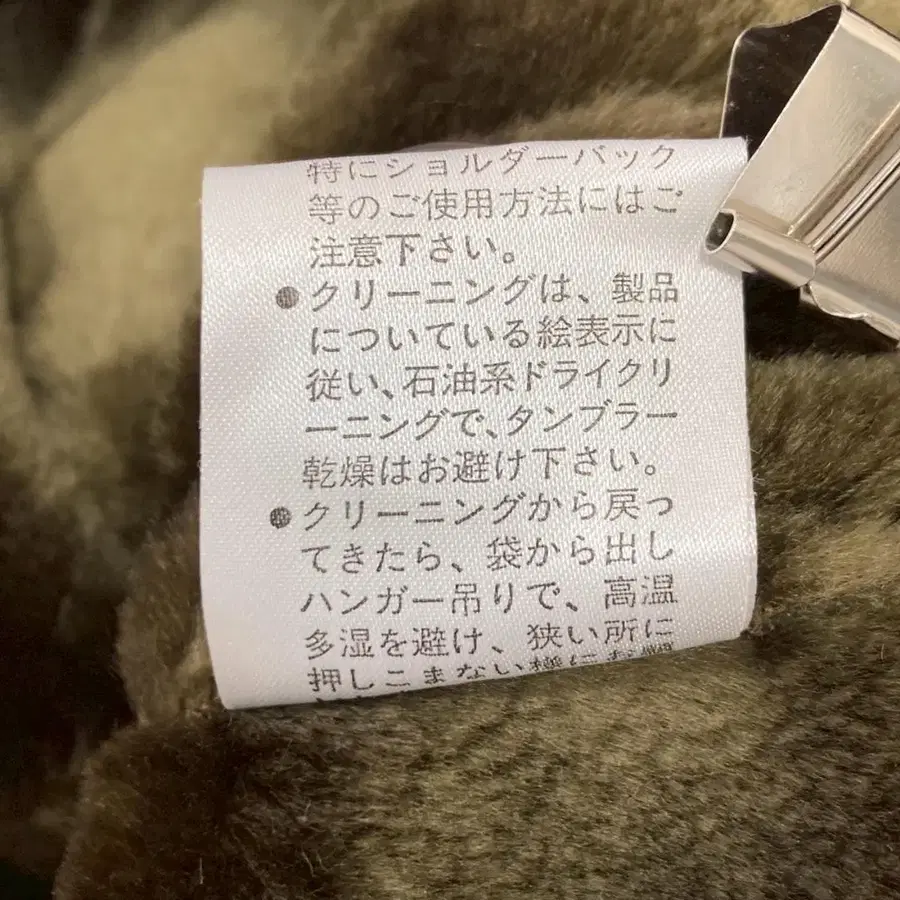 特にショルダーバック
等のご使用方法にはご
注意下さい。
●クリーニングは、製品
についている絵表示に
従い、石油系ドライクリ
ーニングで、タンブラー
乾燥はお避け下さい。
●クリーニングから戻っ
てきたら、袋から出し
ハンガー吊りで、高温
多湿を避け、狭い所に
押しこまない様にお